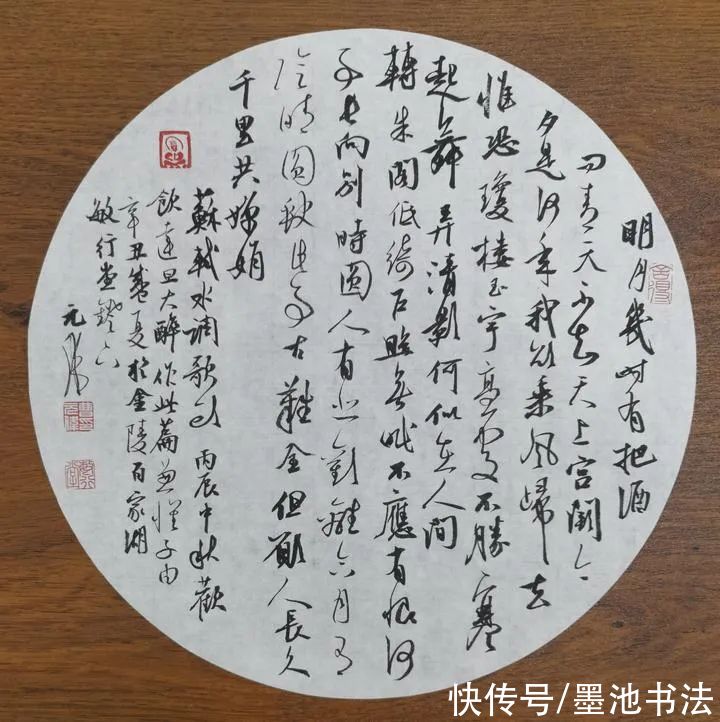 明月幾時有把酒
問青天不知天上宮闕今
夕是何年我欲乘風歸去
惟恐瓊樓玉宇高處不勝寒
起舞弄清影何似在人間
轉朱閣低綺户照無眠不應有恨何
事長向別時圓人有悲歡離合月有
陰晴圓缺此事古難全但願人長久
千里共嬋娟
蘇軾水調歌頭 丙辰中秋歡
飲達旦大醉作此篇兼懷子由
辛丑盛夏於金陵百家湖
敏行堂燈下
元
舍得
快传号/墨池书法